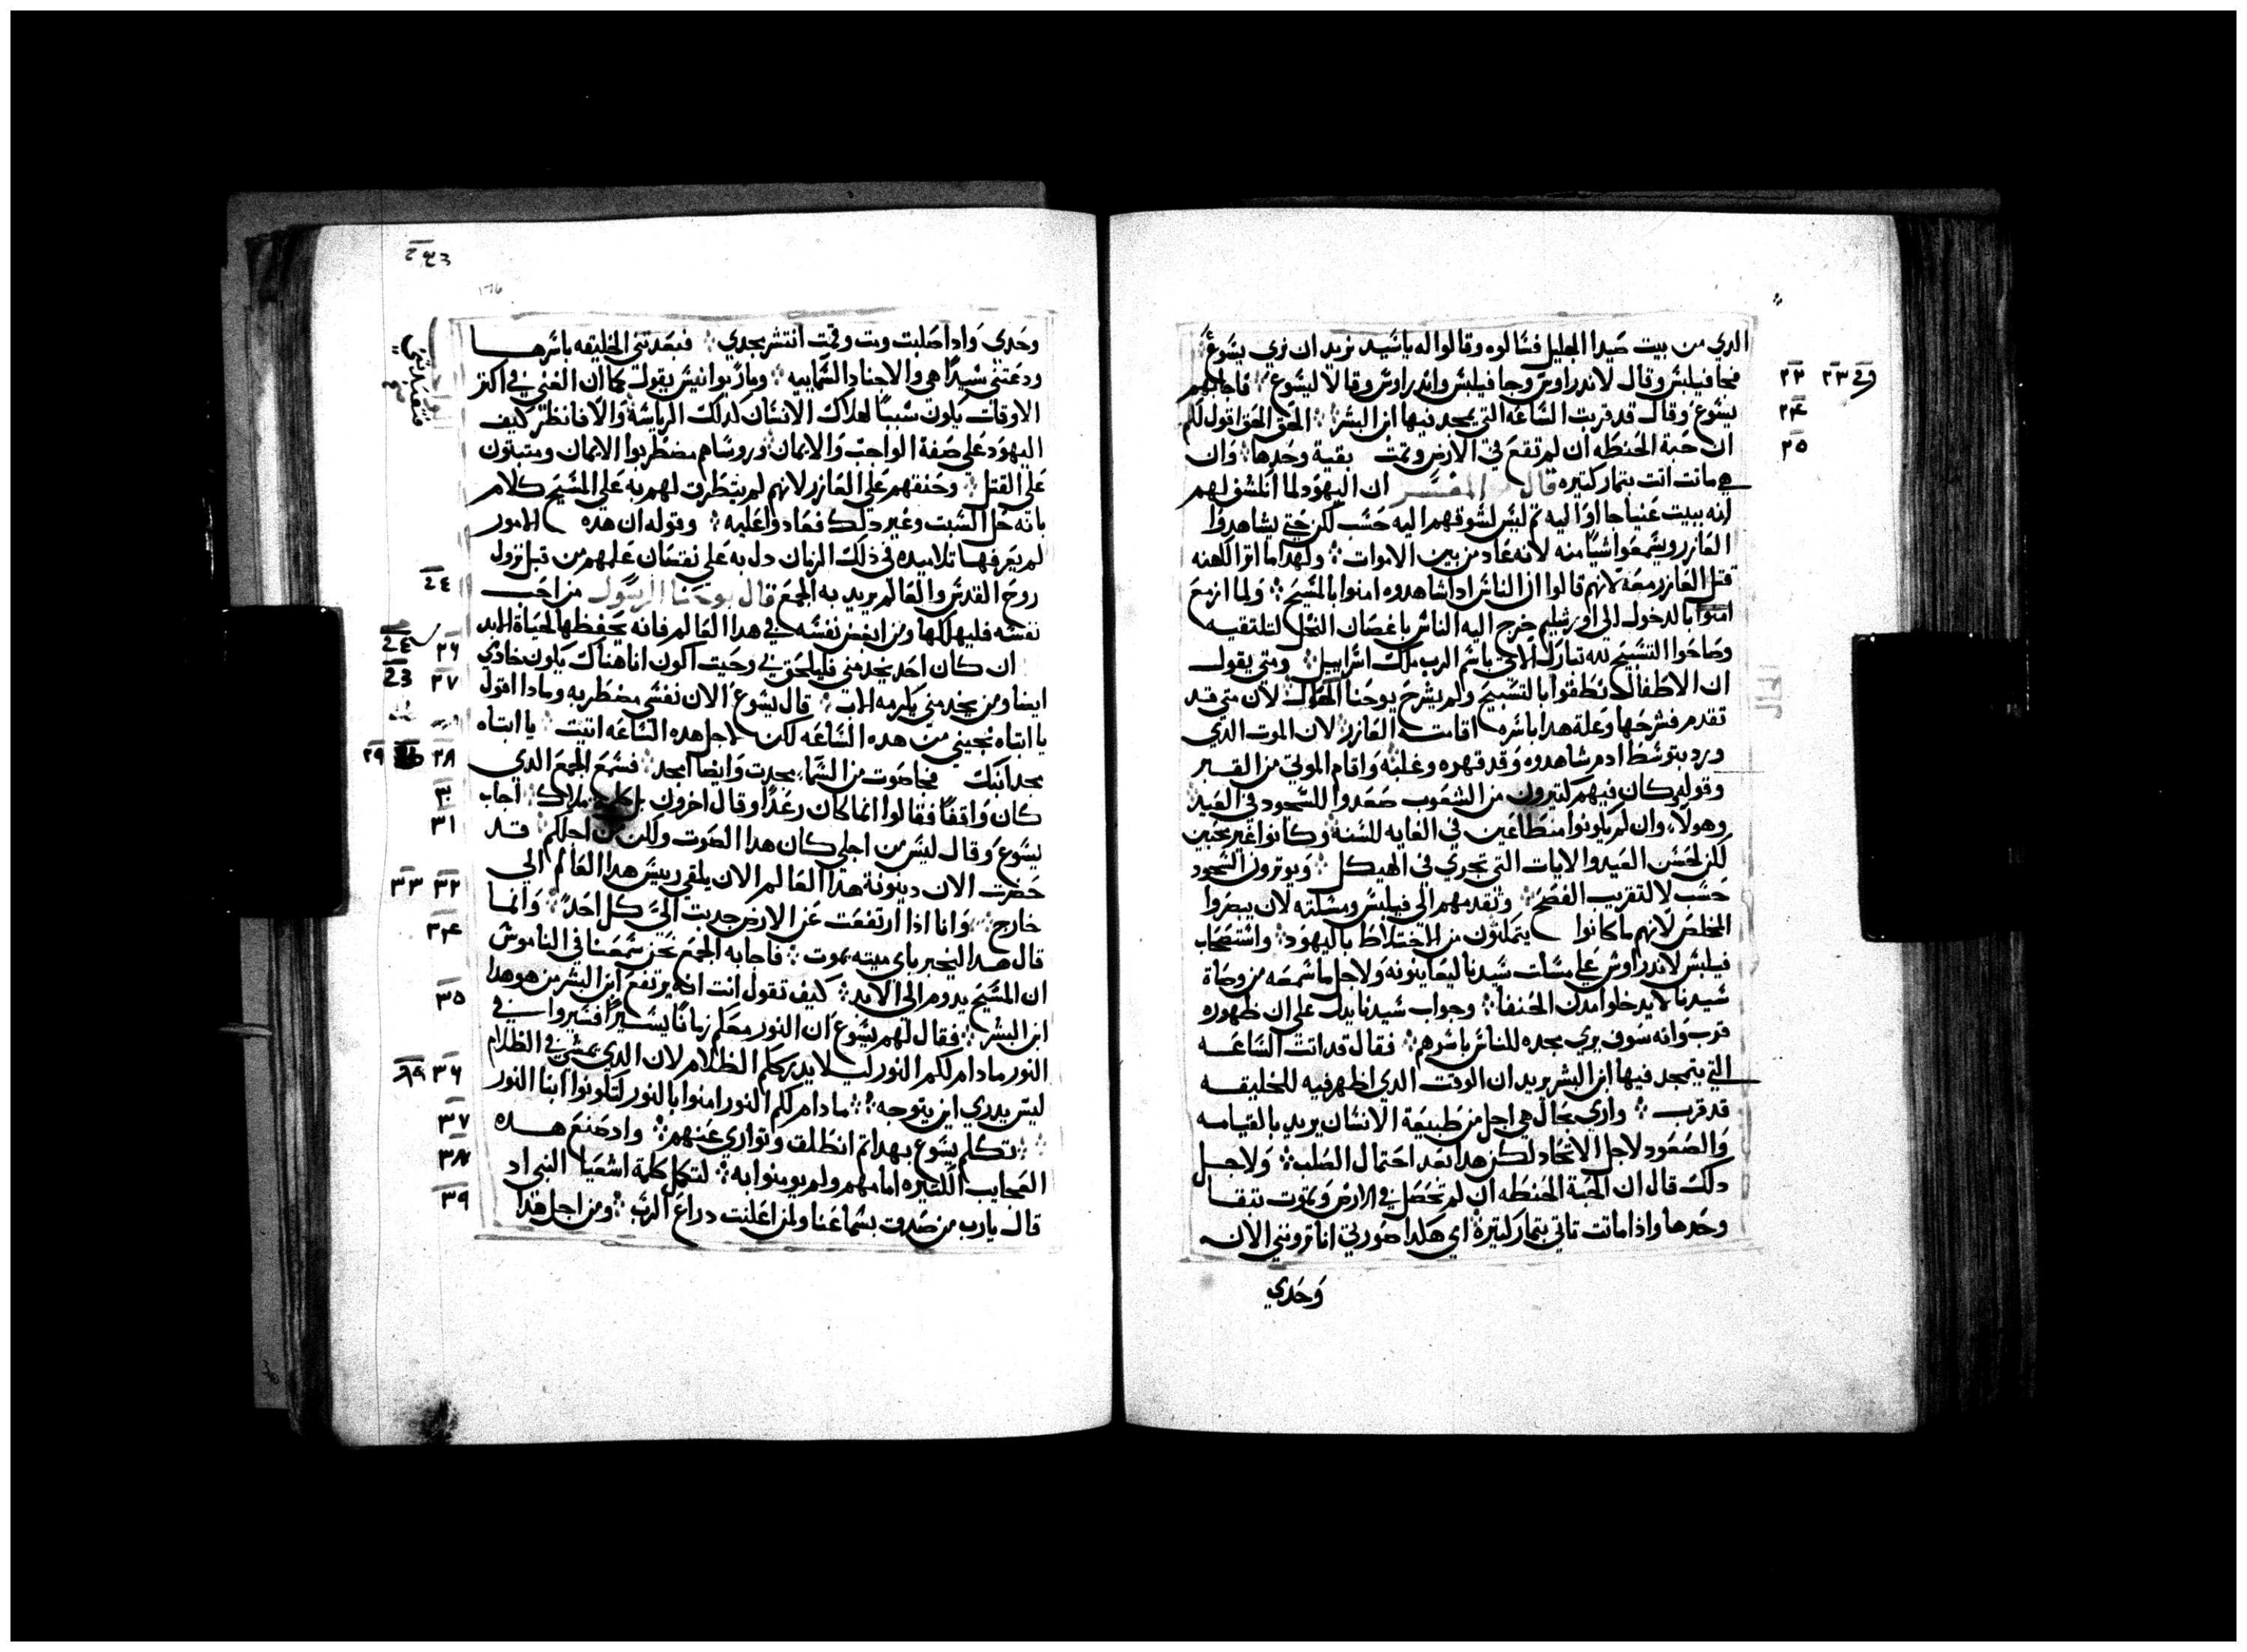 الدي من بيت صيدا الجليل فسالوه وقالوا له ياسيد نريد ان نري يسوع
فجا فيلبس وقال لاندراوس وجا فيلبس واندراوس وقالا ليسوع فاجابهم
يسوع وقال قد قربت الساعه التي يمجد فيها ابن البشر الحق الحق اقول لكم
ان حبة الحنطه ان لم تقع في الارض وتمت بقية وحدها وان
هي ماتت اتت بتمار كتيره قال المفسر ان اليهود لما لهم
انه ببيت عنيا جااوا اليه تم ليس لشوقهم اليه حسب لكن حتي يشاهدوا
العازر ويسمعوا شيا منه لانه عاد من بين الاموات ولهدا ما اثر الكهنه
قتل العازر معه لانهم قالوا ان الناس ادا شاهدوه امنوا بالمسيح ولما ازمع
بالدخول الي اورشليم خرج اليه الناس باغصان النخل لتلتقيه
وصاحوا التسبيح لله تبارك الاتي باسم الرب ملك اسراييل ومتي يقول
ان الاطفال نطقوا بالتسبيح ولم يشرح يوحنا لان متي قد
تقدم فشرحها وعلة هدا باسره اقامته العازر لان الموت الدي
ورد بتوسط ادم شاهدوه وقد قهره وغلبه واقام الموتي من القبر
وقوله كان فيهم كتيرون من الشعوب صعدوا للسجود في العيد
وهولاء وان لم يكونوا منطاعين في الغايه للسنه وكانوا غير
لكن لحسن العيد والايات التي تجري في الهيكل ويوترون السجود
حسب لا لتقريب الفصح وتقدمهم الي فيلبس ومسلته لان يبصروا
المخلص لانهم ما كانوا يتمكنون من الاختلاط باليهود واستصحاب
فيلبس لاندراوس علي مسات سيدنا ليعاينونه ولاجل ما سمعه من وصاة
سيدنا لا يدخلوا مدن الحنفا وجواب سيدنا يدل علي ان ظهوره
قرب وانه سوف يري مجده للناس باسرهم فقال قد اتت الساعه
التي يتمجد فيها ابن البشر يريد ان الوقت الدي اظهر فيه للخليقه
قد قرب واري بحال هي اجل من طبيعة الانسان يريد بالقيامه
والصعود لاجل الاتحاد لكن هدا بعد احتمال الصلب ولاجل
دلك قال ان الحبة الحنطه ان لم تحصل في الارض وتموت تبقا
وحدها واذا ماتت تاتي بتمار كتيرة اي هكدا صورتي انا ترونني الان
وحدي
٢٢ ٢٣
٢٤
٢٥
وحدي وادا صلبت ومت وقمت انتشر مجدي فبعدتني الخليقه باسرها
ودعتني سيدا هي والاجناد السماييه ومار يوانيس يقول كما ان الغني في اكتر
الاوقات يكون سببا لهلاك الانسان لدلك الرياسة والا فانظر كيف
اليهود علي صفة الواجب والايمان وروساهم مضطربوا الايمان ومتبلون
علي القتل وحنقهم علي العازر لانهم لم يتطرق لهم به علي المسيح كلام
بانه حل السبت وغير دلك فعادوا عليه وقوله ان هده الامور
لم يعرفها تلاميده في ذلك الزمان دل به علي نقصان علمهم من قبل نزول
روح القدس والعالم يريد به الجمع قال يوحنا الرسول من احب
نفسه فليهلكها ومن ابغض نفسه في هدا العالم فانه يحفظها لحياة الابد
ان كان احد يخدمني فليلحق بي وحيت اكون انا هناك يكون خادمي
ايضا ومن يخدمني يكرمه الاب قال يسوع الان نفسي مضطربه ومادا اقول
يا ابتاه نجيني من هده الساعه لكن لاجل هده الساعه اتيت يا ابتاه
مجد ابنك فجا صوت من السماء مجدت وايضا امجد فسمع الجمع الدي
كان واقفا فقالوا انما كان رعدا وقال اخرون ملاك اجاب
يسوع وقال ليس من اجلي كان هدا الصوت ولكن من اجلكم قد
حضرت الان دينونة هدا العالم الان يلقي رييس هدا العالم الي
خارج وانا اذا ارتفعت عن الارض جدبت الي كل احد وانما
قال هدا ليخبر باي ميته يموت فاجابه الجمع نحن سمعنا في الناموس
ان المسيح يدوم الي الابد كيف تقول انت انه يرتفع ابن البشر من هو هدا
ابن البشر فقال لهم يسوع ان النور معكم زمانا يسيرا فسيروا في
النور مادام لكم النور ليلا يدرككم الظلام لان الدي يمشي في الظلام
ليس يدري اين يتوجه مادام لكم النور امنوا بالنور لتكونوا ابنا النور
تكلم يسوع بهدا تم انطلق وتواري عنهم واد صنع هده
العجايب الكتيره امامهم ولم يومنوا به لتكمل كلمة اشعيا النبي اد
قال يارب من صدق بسماعنا ولمن اعلنت دراع الرب ومن اجل هدا
٢٦
٢٧
٢٨ ٢٩
٣٠
٣١
٣٢ ٣٣
٣٤
٣٥
٣٦
٣٧
٣٨
٣٩